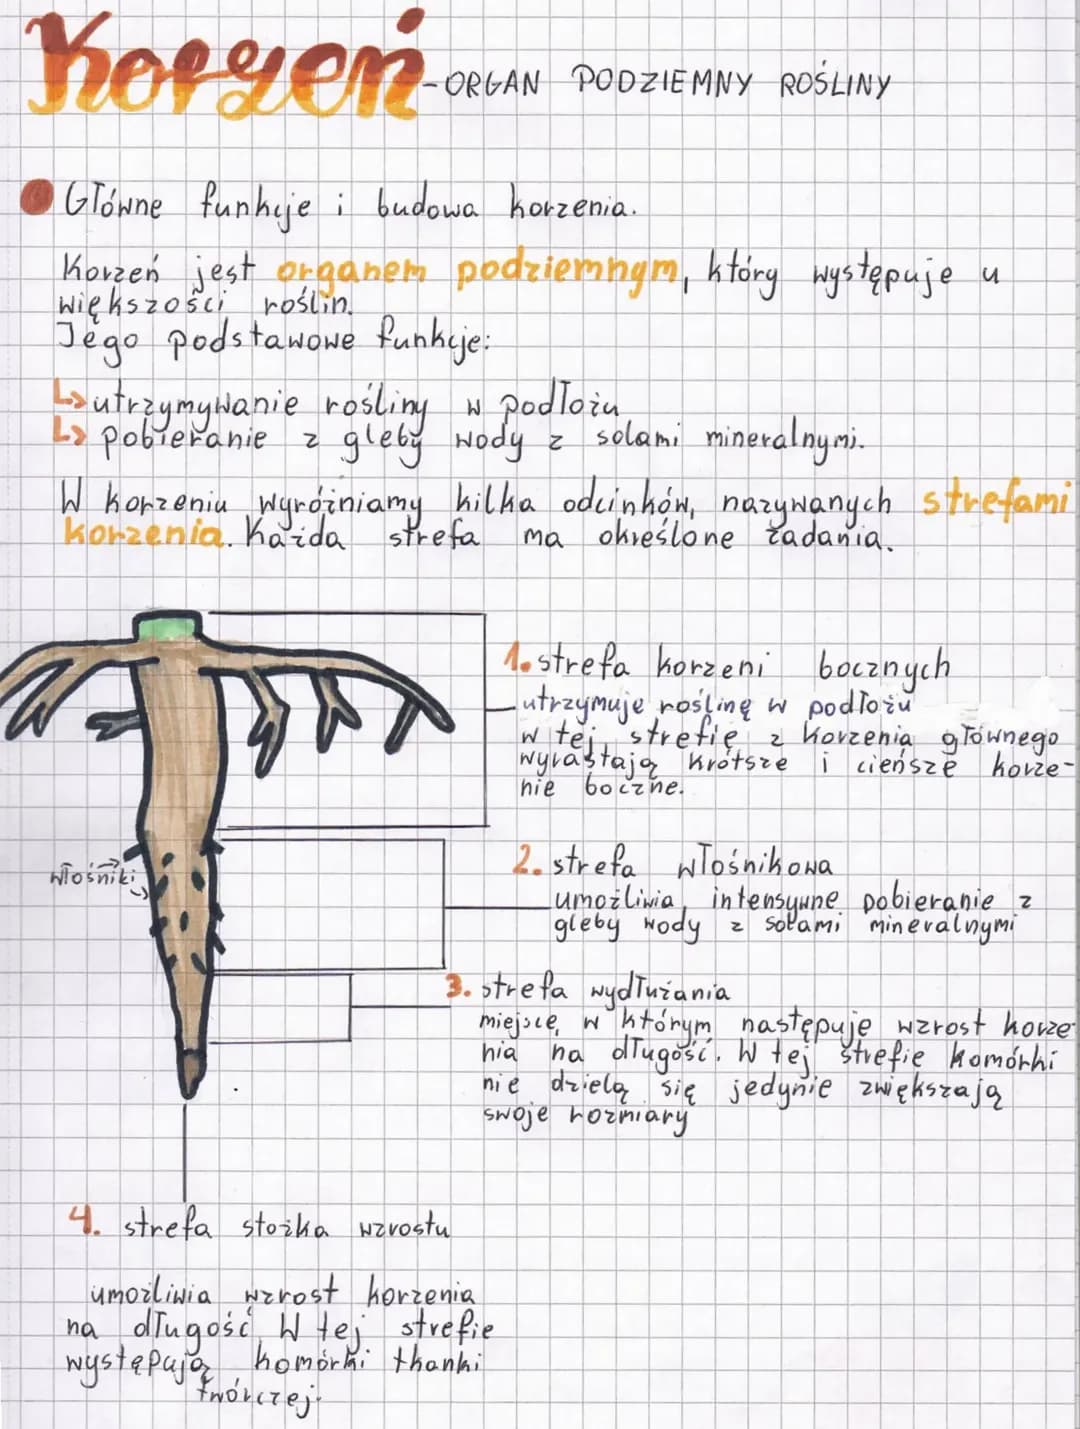 Korzeń - ORGAN PODZIEMNY ROŚLINY
Główne funkcje i budowa korzenia.
Korzeń jest organem podziemnym, który występuje u
większości roślin.
Jego podstawowe funkcje:
↳ utrzymywanie rośliny w podłożu
↳ pobieranie z gleby wody z solami mineralnymi.
W korzeniu wyróżniamy kilka odcinków, nazywanych strefami
korzenia. Każda strefa ma określone zadania.
1. strefa korzeni bocznych
utrzymuje roślinę w podłożu
w tej strefie z korzenia głównego
wyrastają krótsze i cieńsze korze-
nie boczne.
włośniki
2. strefa włośnikowa
umożliwia intensywne pobieranie z
gleby wody z solami mineralnymi
3. strefa wydłużania
miejsce, w którym następuje wzrost korze
nia na długość. W tej strefie komórki
nie dzielą się jedynie zwiększają
swoje rozmiary
4. strefa stożka wzrostu
umożliwia wzrost korzenia
na długość W tej strefie
występują komórki tkanki
twórczej.